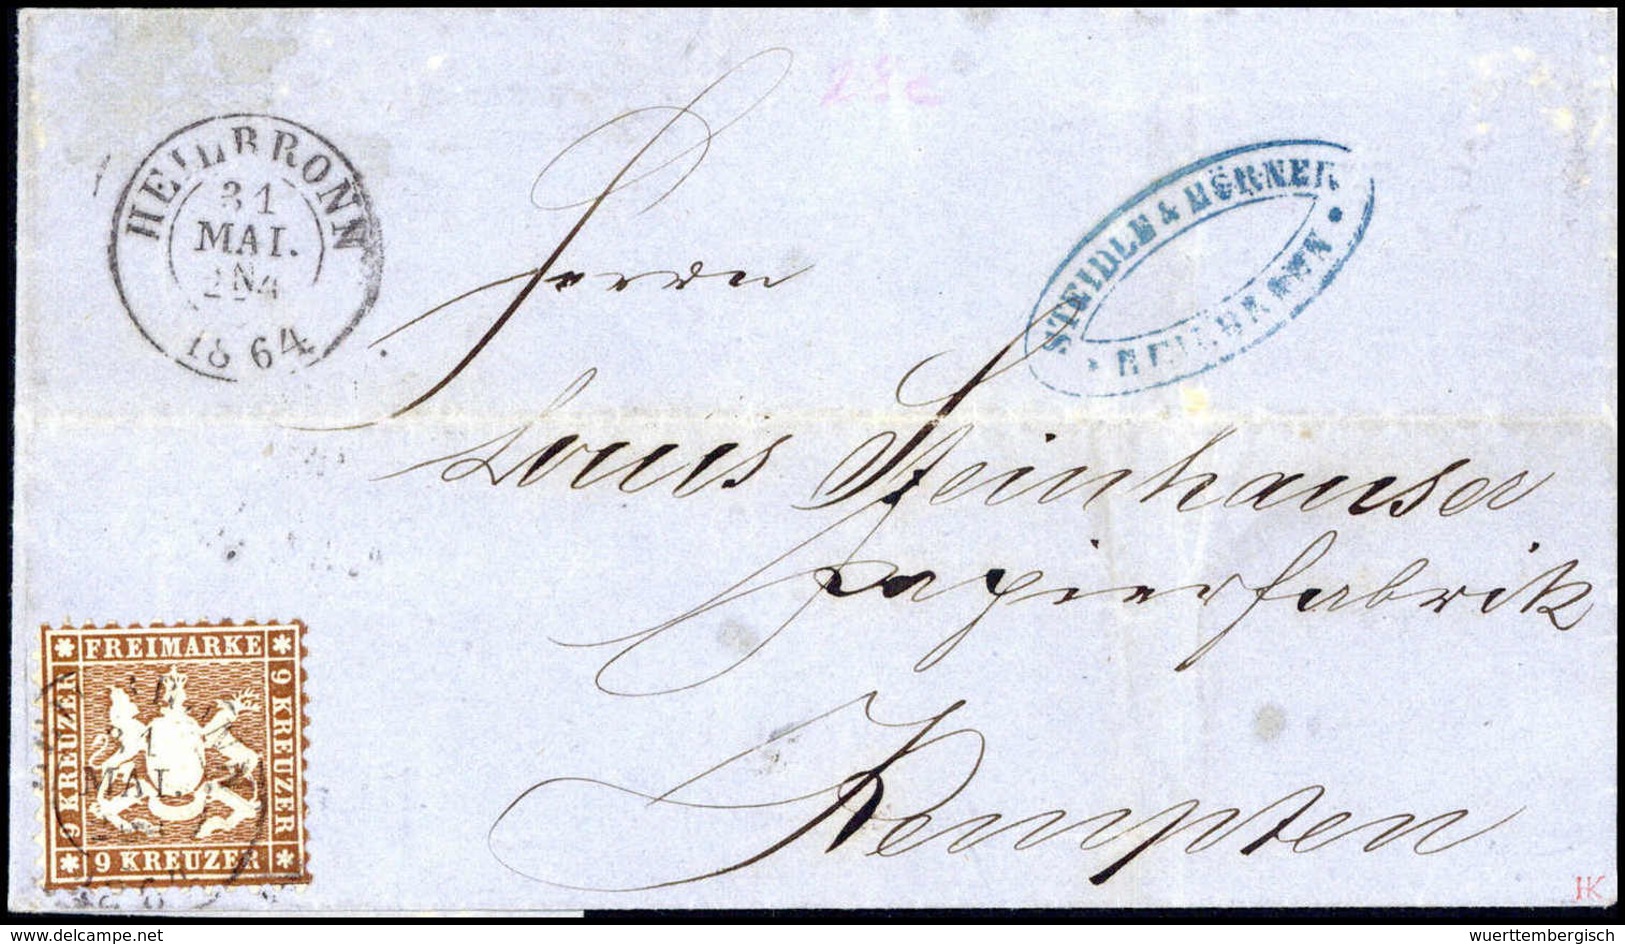 24c
HEILBRONN
31
MAI.
1864
STEIDLE & HÖRNER
HEILBRONN
Herrn
Louis Steinhauser
papierfabrik
Kempten
FREIMARKE
9 KREUZER
9 KREUZER
9 KREUZER
31
MAI.
HK
© www.delcampe.net
wuerttembergisch